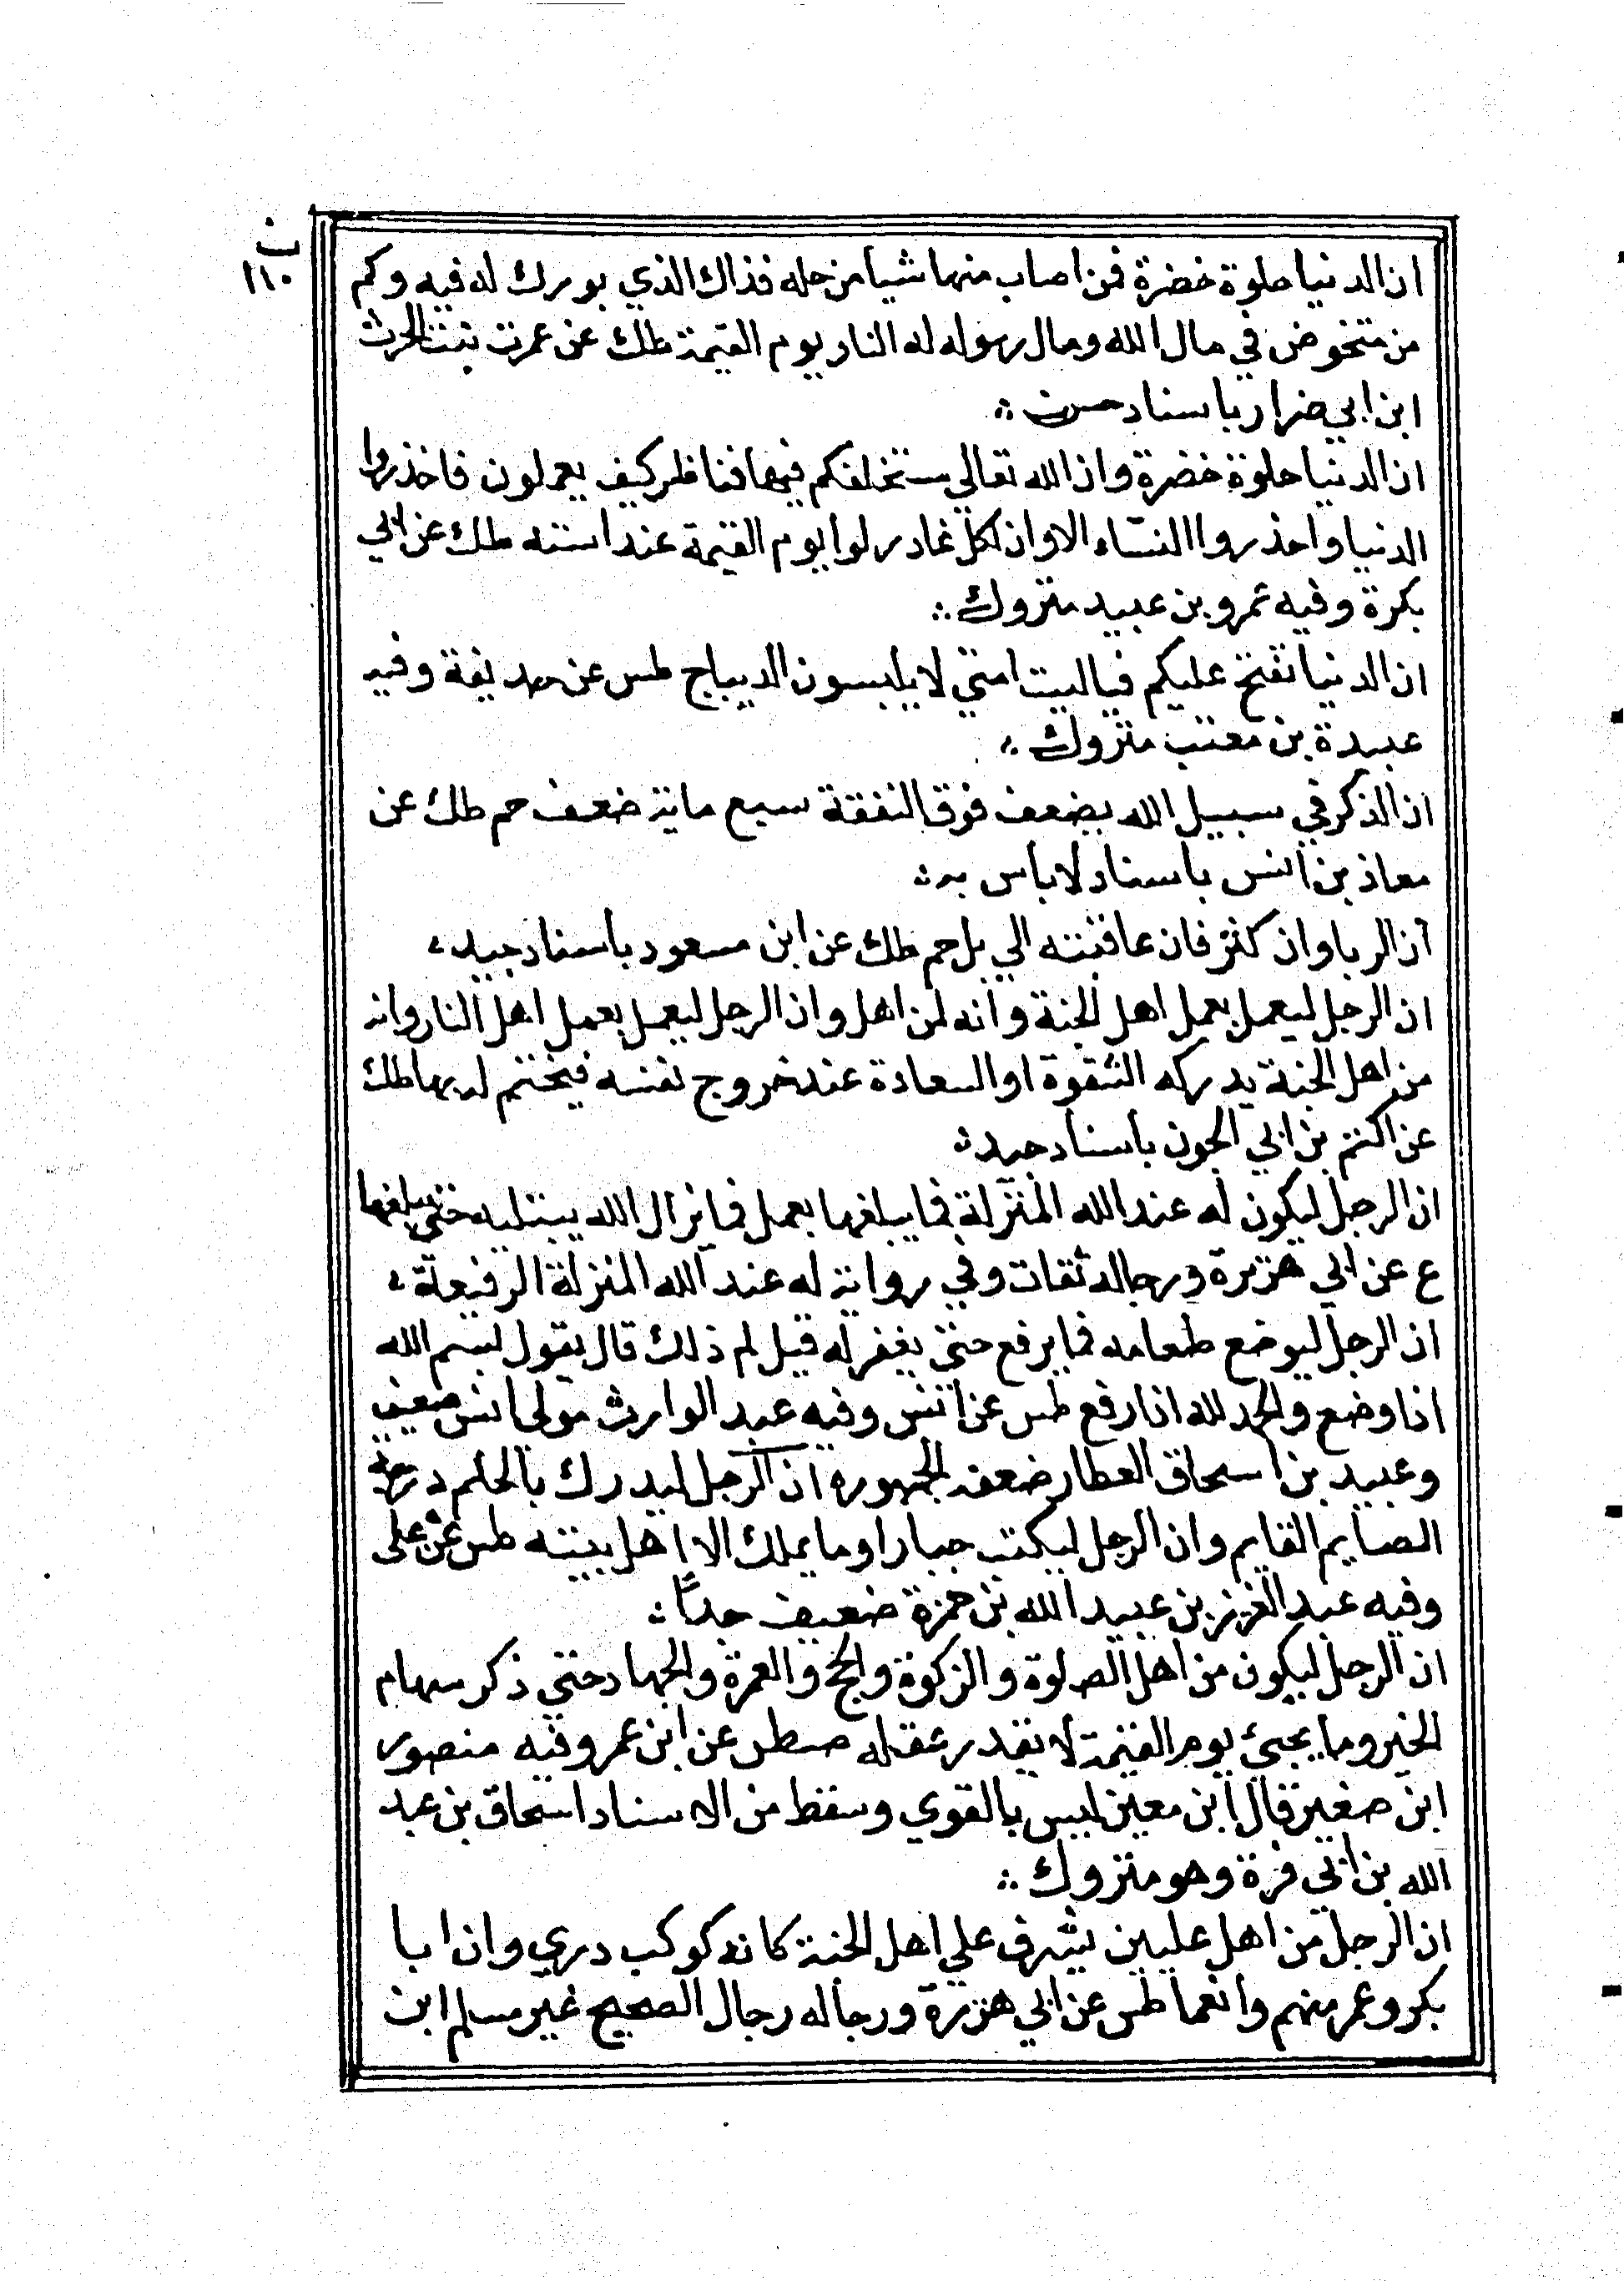 ن
١١٠
ان الدنيا حلوة خضرة فمن اصاب منها شيا من حله فذاك الذي بورك له فيه وكم
من متخوض في مال الله ومال رسوله له النار يوم القيمة طك عن عمرت بنت الحرث
ابن ابي ضرار باسناد حسن
ان الدنيا حلوة خضرة وان الله تعالي ستخلفكم فيها فناظر كيف يعملون فاحذروا
الدنيا واحذروا النساء الا وان لكل غادر لوا يوم القيمة عند استه طك عن ابي
بكرة وفيه عمرو بن عبيد متروك
ان الدنيا تفتح عليكم فياليت امتي لا يلبسون الديباج طس عن حذيفة وفيه
عبيدة بن معتب متروك
ان الذكر في سبيل الله يضعف فوق النفقة سبع ماية ضعف حم طك عن
معاذ بن انس باسناد لا باس به
ان الربا وان كثر فان عاقبته الي بل حم طك عن ابن مسعود باسناد جيد
ان الرجل ليعمل بعمل اهل الجنة وانه لمن اهل وان الرجل ليعمل بعمل اهل النار وانه
من اهل الجنة يدركه الشقوة او السعادة عند خروج نفسه فيختم له بها طك
عن اكثم بن ابي الجون باسناد جيد
ان الرجل ليكون له عند الله المنزلة فما يبلغها بعمل فما يزال الله يبتليه حتي يبلغها
ع عن ابي هريرة ورجاله ثقات وفي رواية له عند الله المنزلة الرفيعة
ان الرجل ليوضع طعامه فما يرفع حتي يغفر له قيل لم ذلك قال يقول بسم الله
اذا وضع والحمد لله اذا رفع طس عن انس وفيه عبد الوارث مولى انس ضعيف
وعبيد بن اسحاق العطار ضعفه الجمهور ان الرجل ليدرك بالحلم درجة
الصايم القايم وان الرجل ليكتب جبارا وما يملك الا اهل بيته طس عن على
وفيه عبد العزيز بن عبيد الله بن حمزة ضعيف جدا
ان الرجل ليكون من اهل الصلوة والزكوة والحج والعمرة والجهاد حتي ذكر سهام
الخير وما يجئ يوم القيمة لا بقدر عقله صطس عن ابن عمر وفيه منصور
ابن صغير قال ابن معين ليس بالقوي وسقط من الاسناد اسحاق بن عبد
الله بن ابي فرة وهو متروك
ان الرجل من اهل عليين يشرف علي اهل الجنة كانه كوكب دري وان ابا
بكر وعمر منهم وانعما طس عن ابي هريرة ورجاله رجال الصحيح غير مسلم ابن